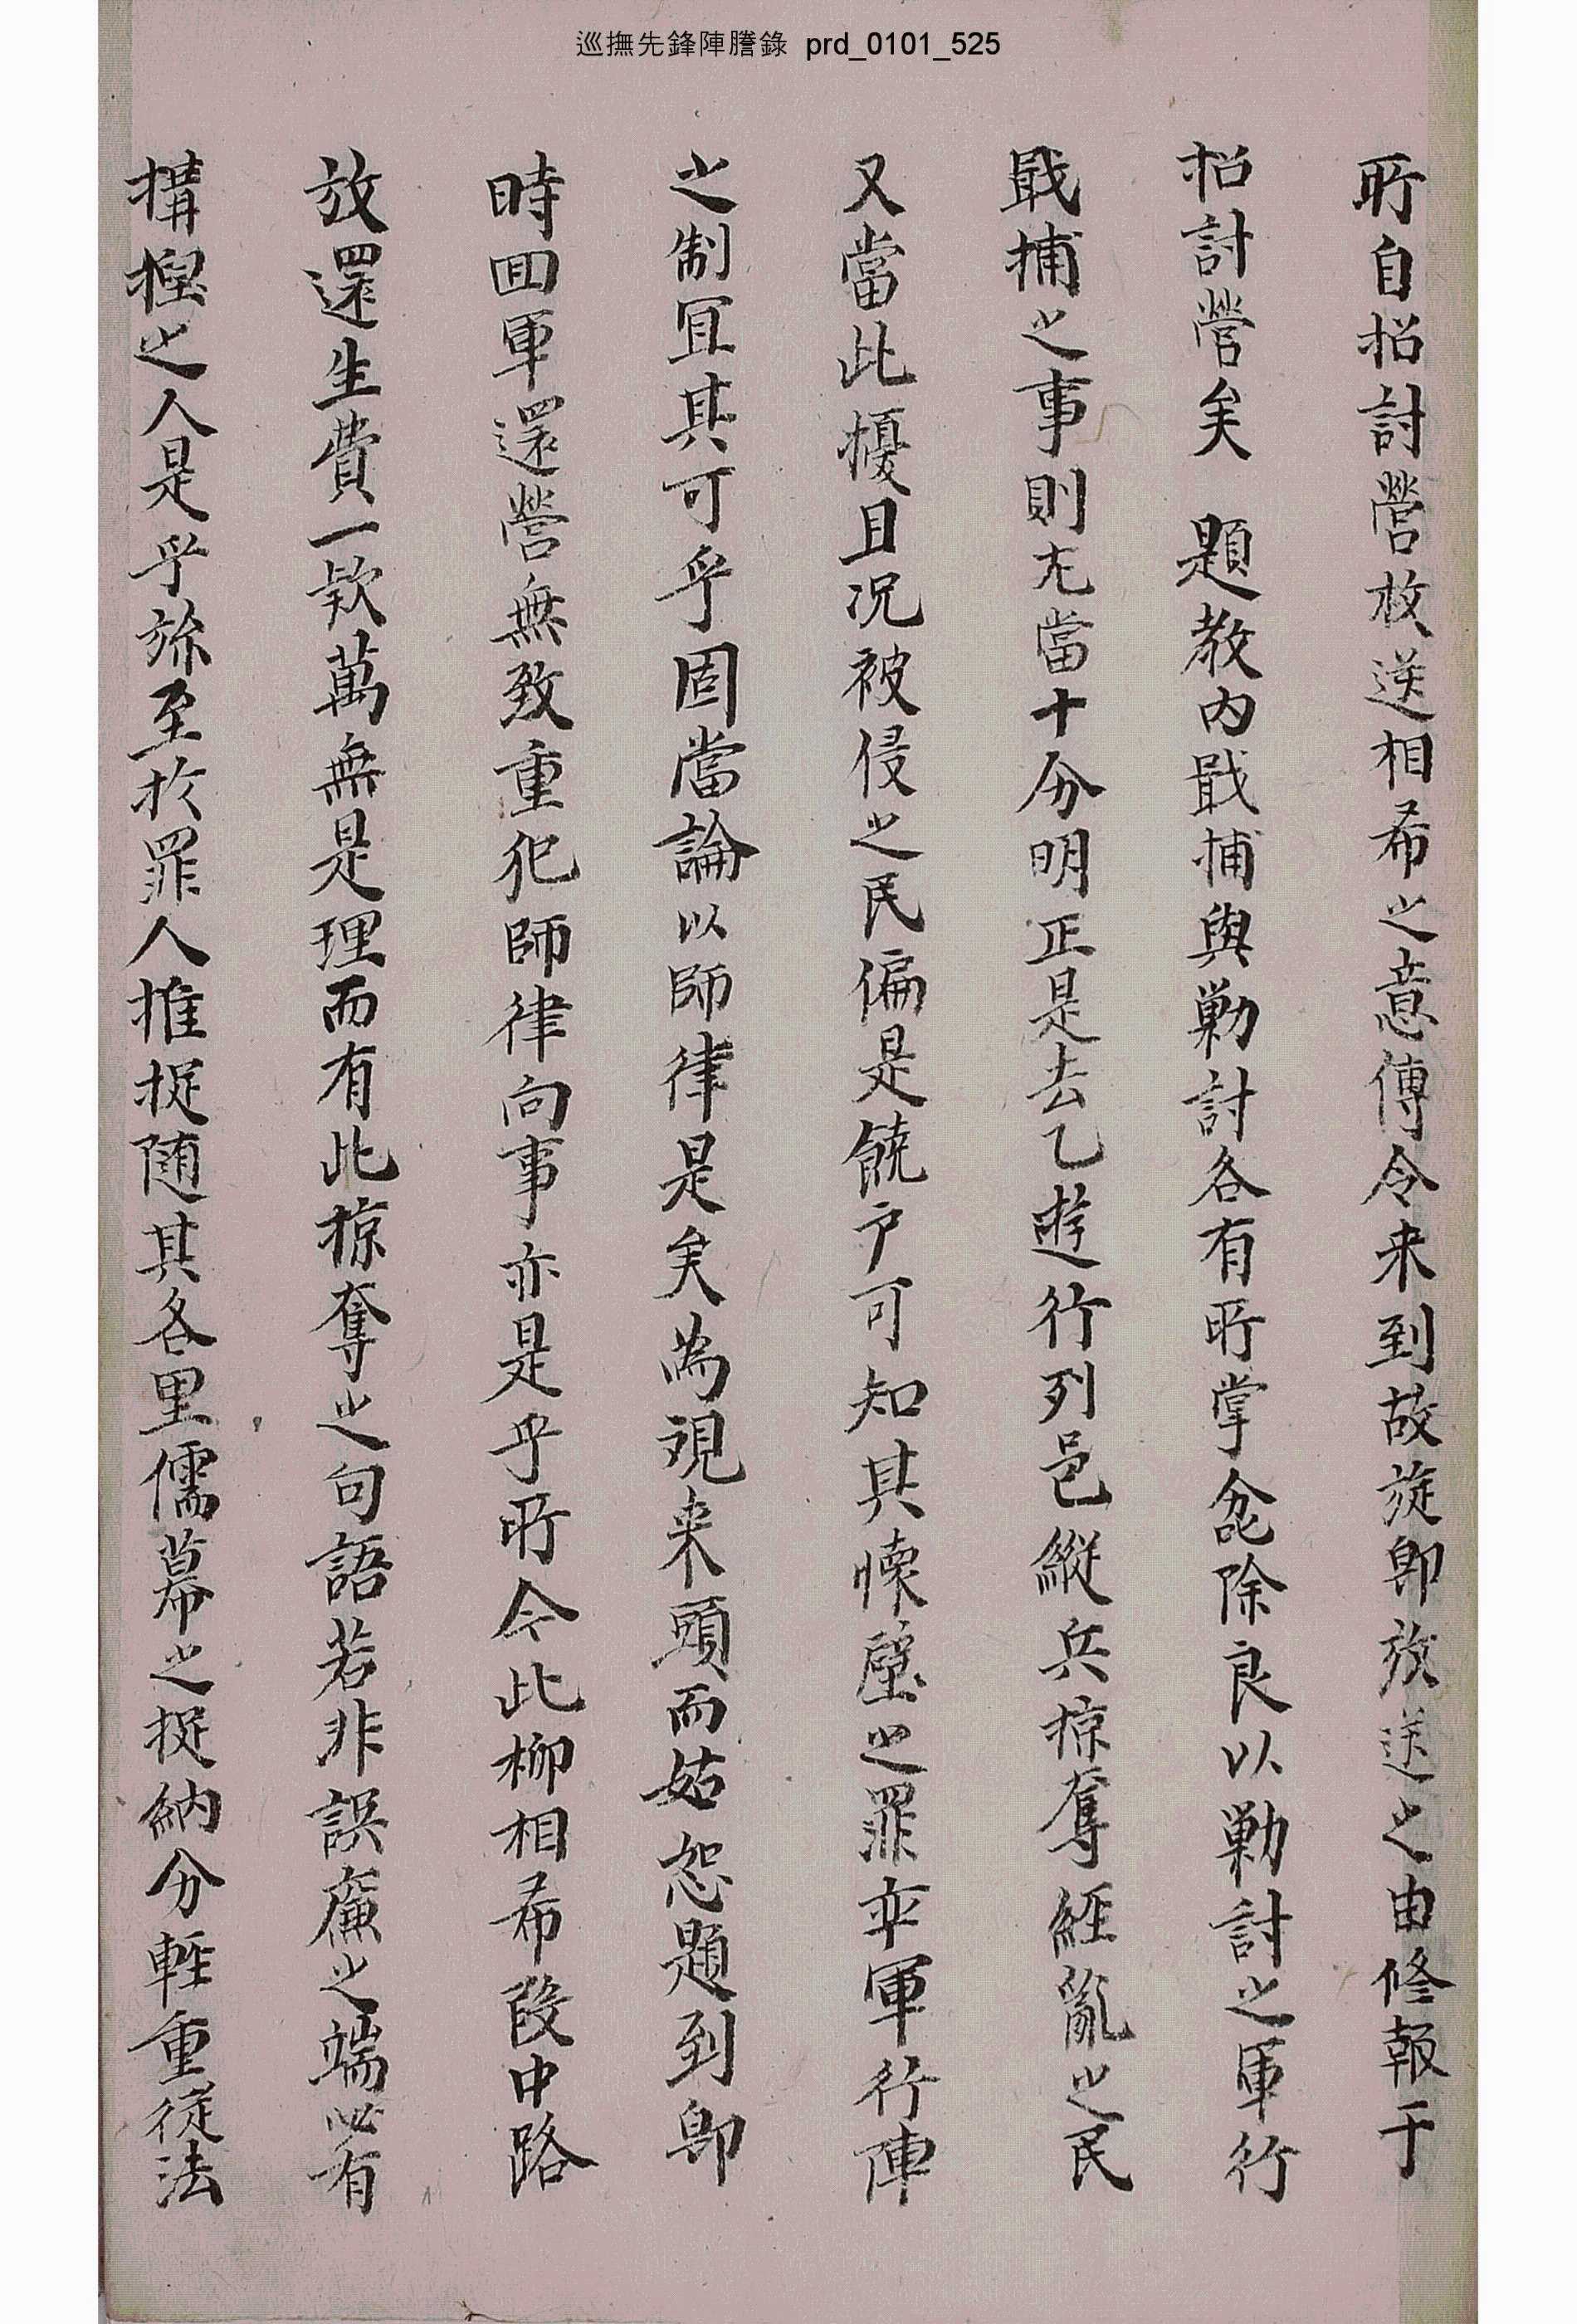 巡撫先鋒陣謄錄 prd_0101_525
所自招討營枚送相希之意傳令来到故旋卽放送之由修報于
招討營矣 題教內戢捕與勦討各有所掌兺除良以勦討之軍行
戢捕之事則尤當十分明正是去乙遊行列邑縱兵掠奪經亂之民
又當此擾且况被侵之民偏是饒户可知其懷璧之罪平軍行陣
之制冝其可乎固當論以師律是矣爲觀来頭而姑恕題到卽
時回軍還營無致重犯師律向事亦是乎所今此柳相希段中路
放還生費一欵萬無是理而有此掠奪之句語若非誤廉之端必有
搆揑之人是乎旀至於罪人推捉随其各里儒幕之捉納分輕重從法